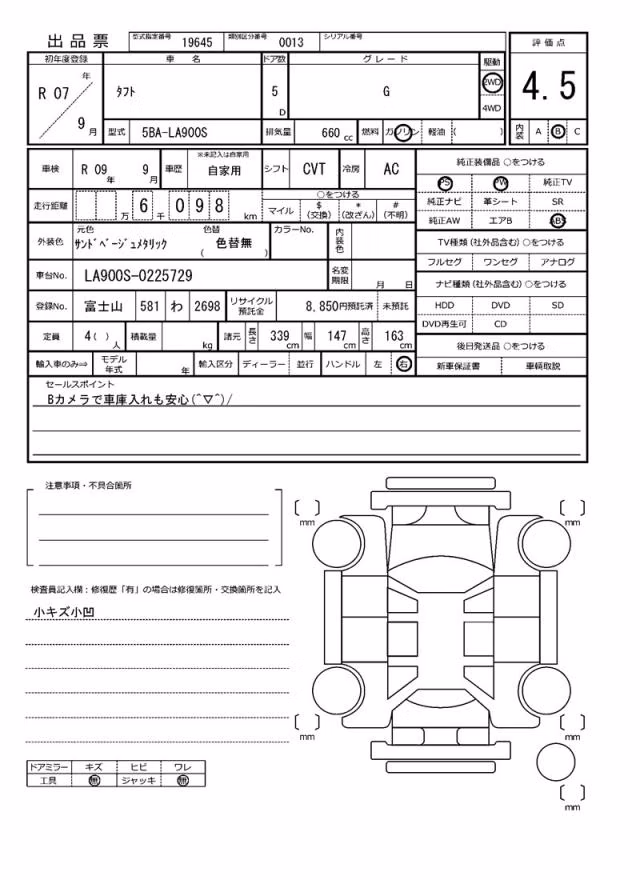 出品票 型式指定番号 19645 類別区分番号 0013 シリアル番号
初年度登録 車名 ドア数 グレード 駆動 評価点
R 07 年 9 月 タフト 5 D G 2WD 4WD 4.5
型式 5BA-LA900S 排気量 660 cc 燃料 ガソリン 軽油 ( ) 内装 A B C
車検 R 09 年 9 月 車歴 ※未記入は自家用 自家用 シフト CVT 冷房 AC 純正装備品 ○をつける
PS PW 純正TV
走行距離 万 6 千 0 9 8 km ○をつける 純正ナビ 革シート SR
マイル $(交換) *(改ざん) #(不明) 純正AW エアB ABS
外装色 元色 サンドベージュメタリック 色替 ( 色替無 ) カラーNo. 内装色 TV種類 (社外品含む) ○をつける
フルセグ ワンセグ アナログ
車台No. LA900S-0225729 名変期限 月 日 ナビ種類 (社外品含む) ○をつける
登録No. 富士山 581 わ 2698 リサイクル預託金 8,850円預託済 未預託 HDD DVD SD
DVD再生可 CD
定員 4( ) 人 積載量 kg 諸元 長さ 339 cm 幅 147 cm 高さ 163 cm 後日発送品 ○をつける
輸入車のみ⇒ モデル年式 年 輸入区分 ディーラー 並行 ハンドル 左 右 新車保証書 車輌取説
セールスポイント
Bカメラで車庫入れも安心(^▽^)/
注意事項・不具合箇所
mm mm
検査員記入欄:修復歴「有」の場合は修復箇所・交換箇所を記入
小キズ小凹
mm mm
ドアミラー キズ ヒビ ワレ
工具 無 ジャッキ 無
mm